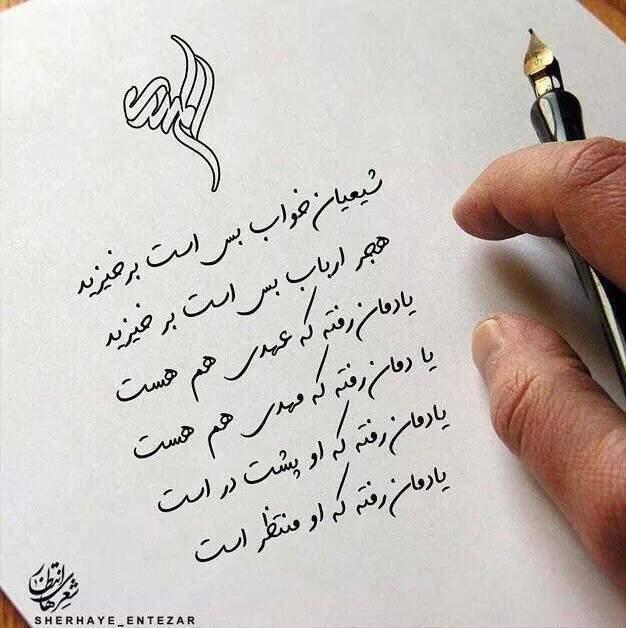 المهدی
شیعیان خواب بس است برخیزید
هجر ارباب بس است بر خیزید
یادمان رفته که عهدی هم هست
یادمان رفته که مهدی هم هست
یادمان رفته که او پشت در است
یادمان رفته که او منتظر است
شعرهای انتظار
SHERHAYE_ENTEZAR